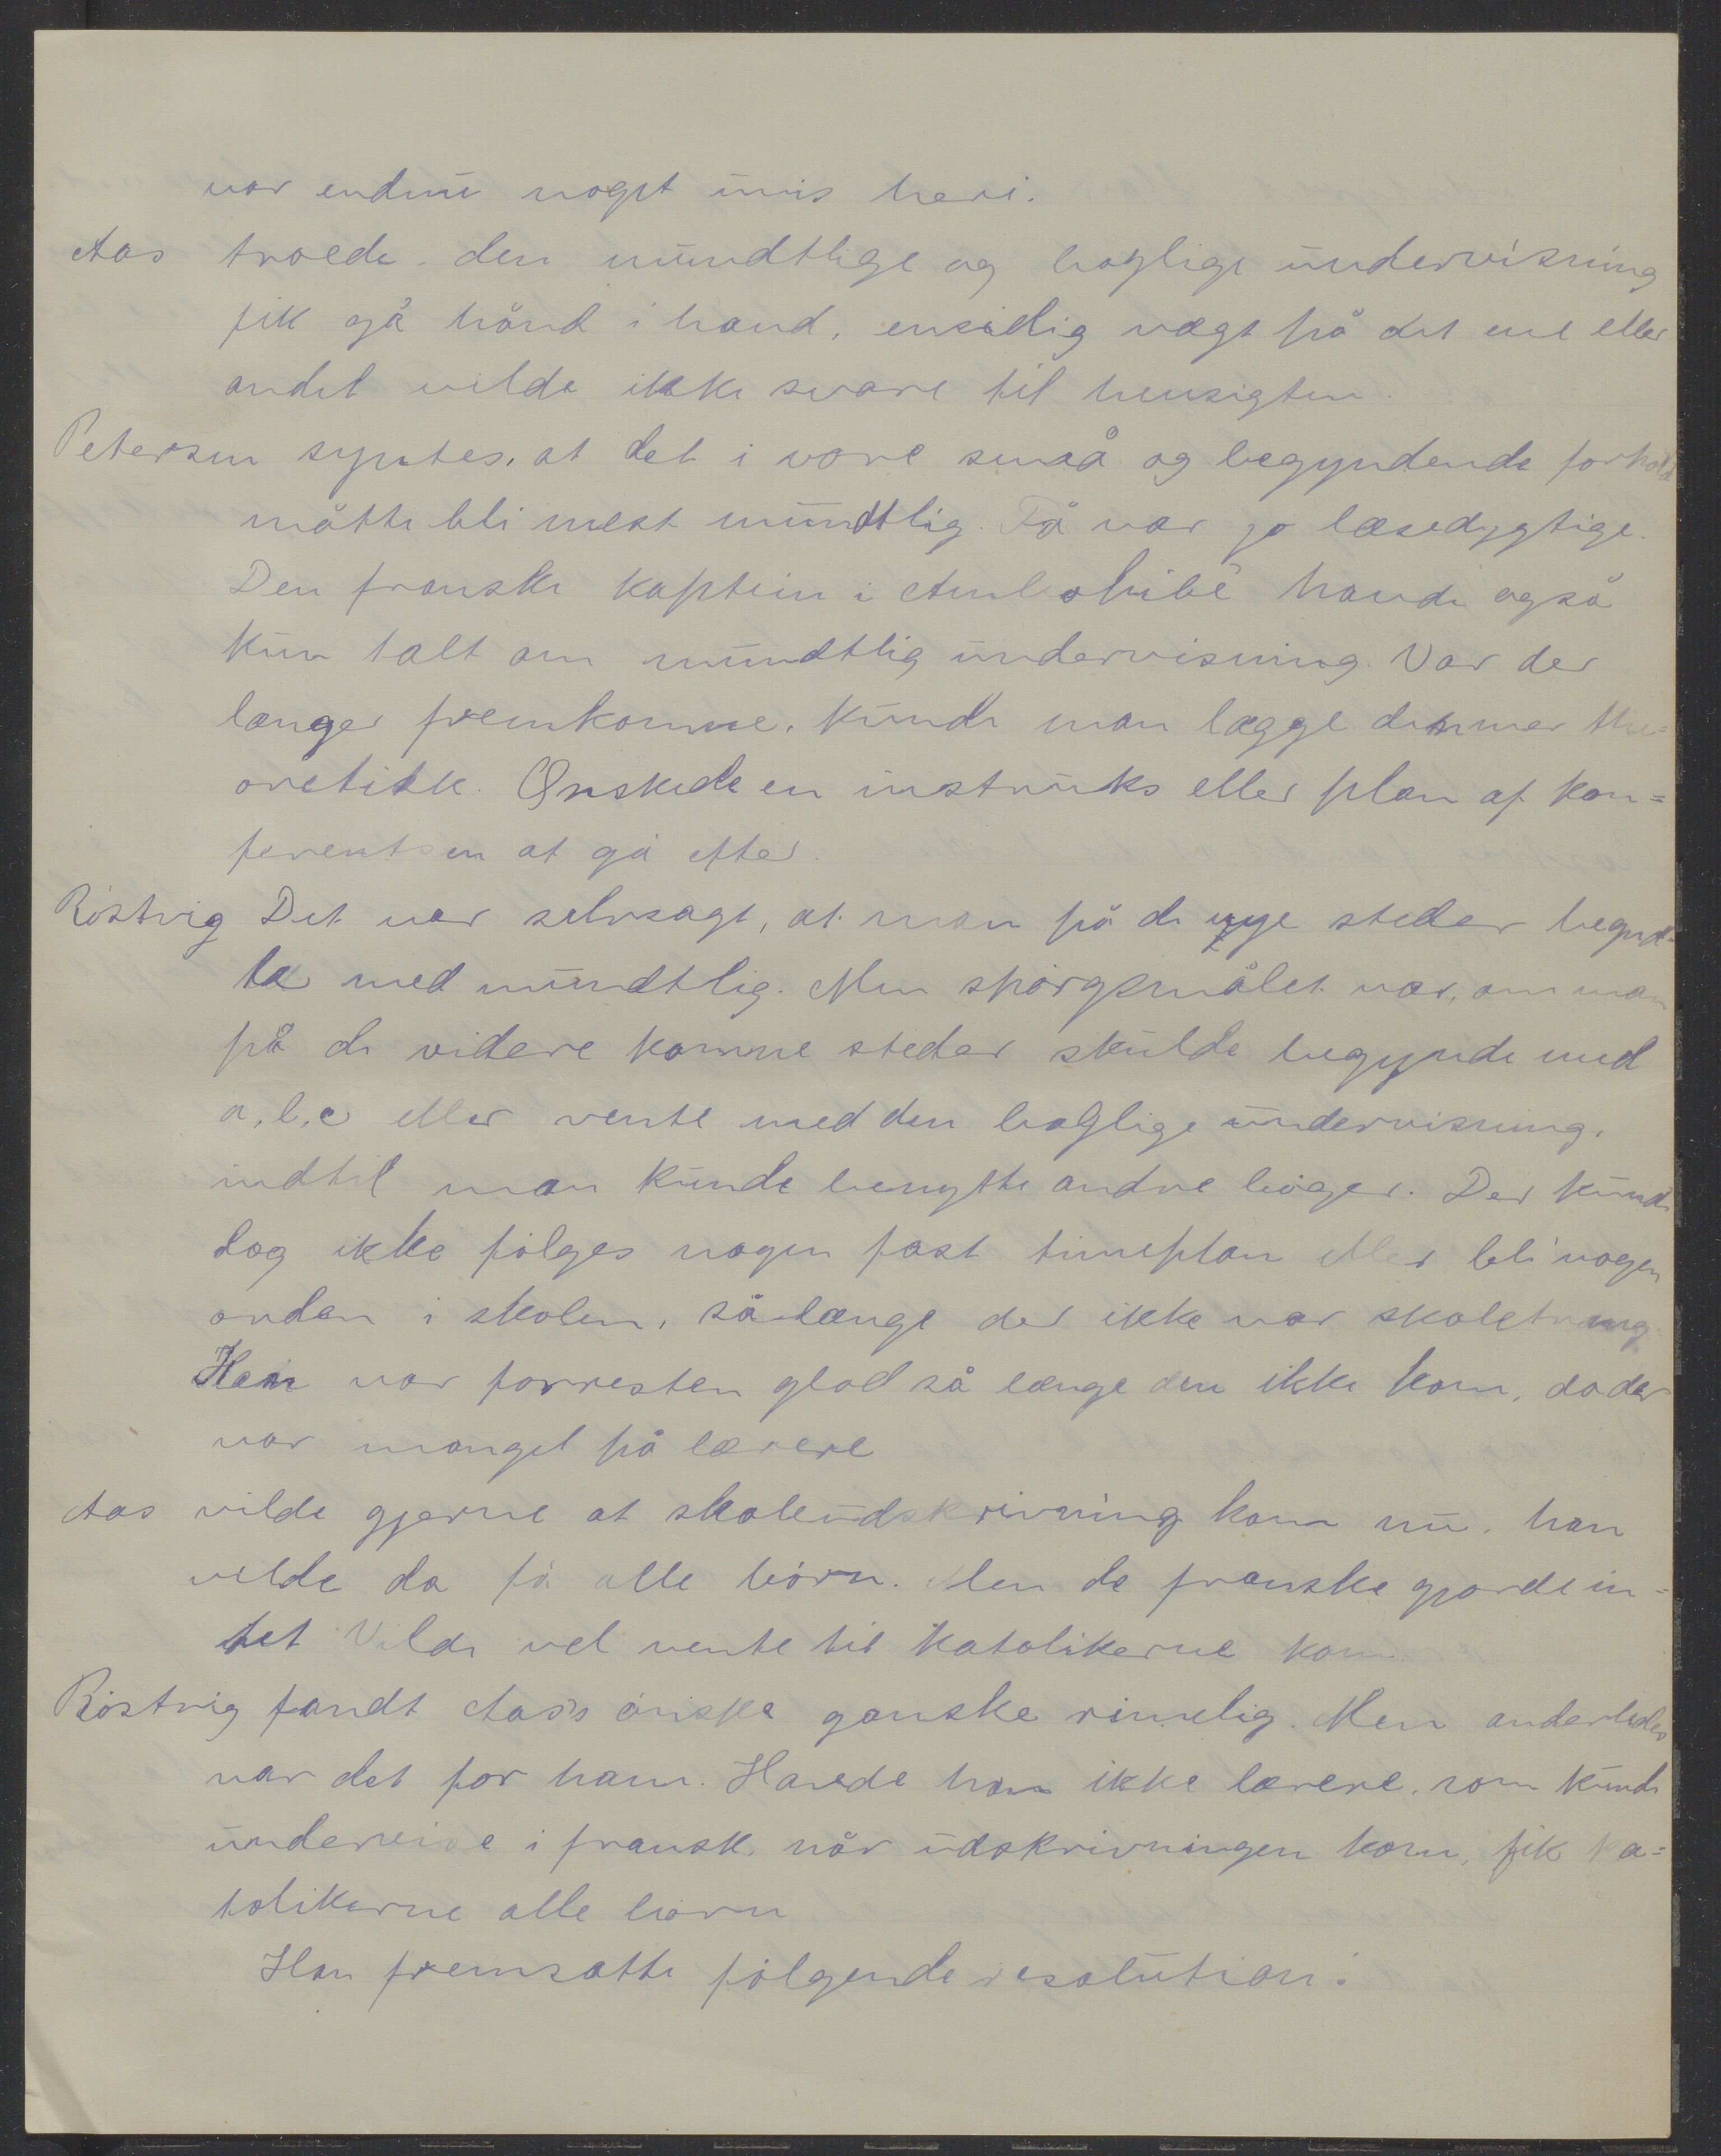 var endnu noget uvis heri.
Aas troede den mundtlige og boglige undervisning
fik gå hånd i hand, ensidig vægt på det ene eller
andet vilde ikke svare til hensigten.
Petersen syntes, at det i vore små og begyndende forhold
måtte bli mest mundtlig. Få var jo læsedygtige.
Den franske kaptein i Ambohibé havde også
kun talt om mundtlig undervisning. Var der
længer fremkomne, kunde man lægge det mer the=
oretisk. Ønskede en instruks eller plan af kon=
ferentsen at gå efter.
Röstvig Det var selvsagt, at man på de nye steder begynd=
te med mundtlig. Men spörgsmålet var, om man
på de videre komne steder skulde begynde med
a, b, c eller vente med den boglige undervisning,
indtil man kunde benytte andre böger. Der kunde
dog ikke fölges nogen fast timeplan eller bli nogen
orden i skolen, sålænge der ikke var skoletvang.
Han var forresten glad så længe den ikke kom, da der
var mangel på lærere
Aas vilde gjerne at skoleudskrivning kom nu, han
vilde da få alle börn. Men de franske gjorde in=
tet Vilde vel vente til katolikerne kom.
Röstvig fandt Aas's önske ganske rimelig. Men anderledes
var det for ham. Havde han ikke lærere, som kunde
undervise i fransk, når udskrivningen kom, fik ka=
tolikerne alle börn
Han fremsatte fölgende resolution: